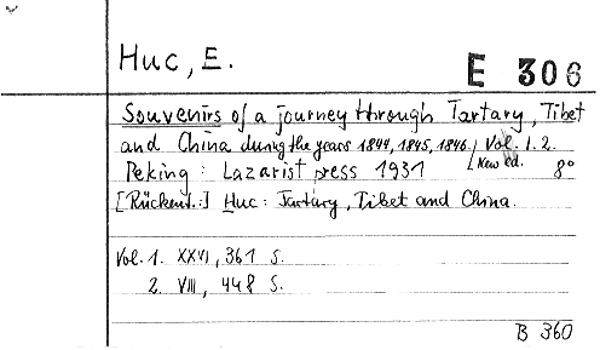 Huc, E.
E 306
Souvenirs of a journey through Tartary, Tibet
and China during the years 1844, 1845, 1846. / Vol. 1. 2.
Peking : Lazarist press 1931 [New ed. 8°
[Rückent.:] Huc: Tartary, Tibet and China.
Vol. 1. XXVI, 361 S.
2. VIII, 448 S.
B 360